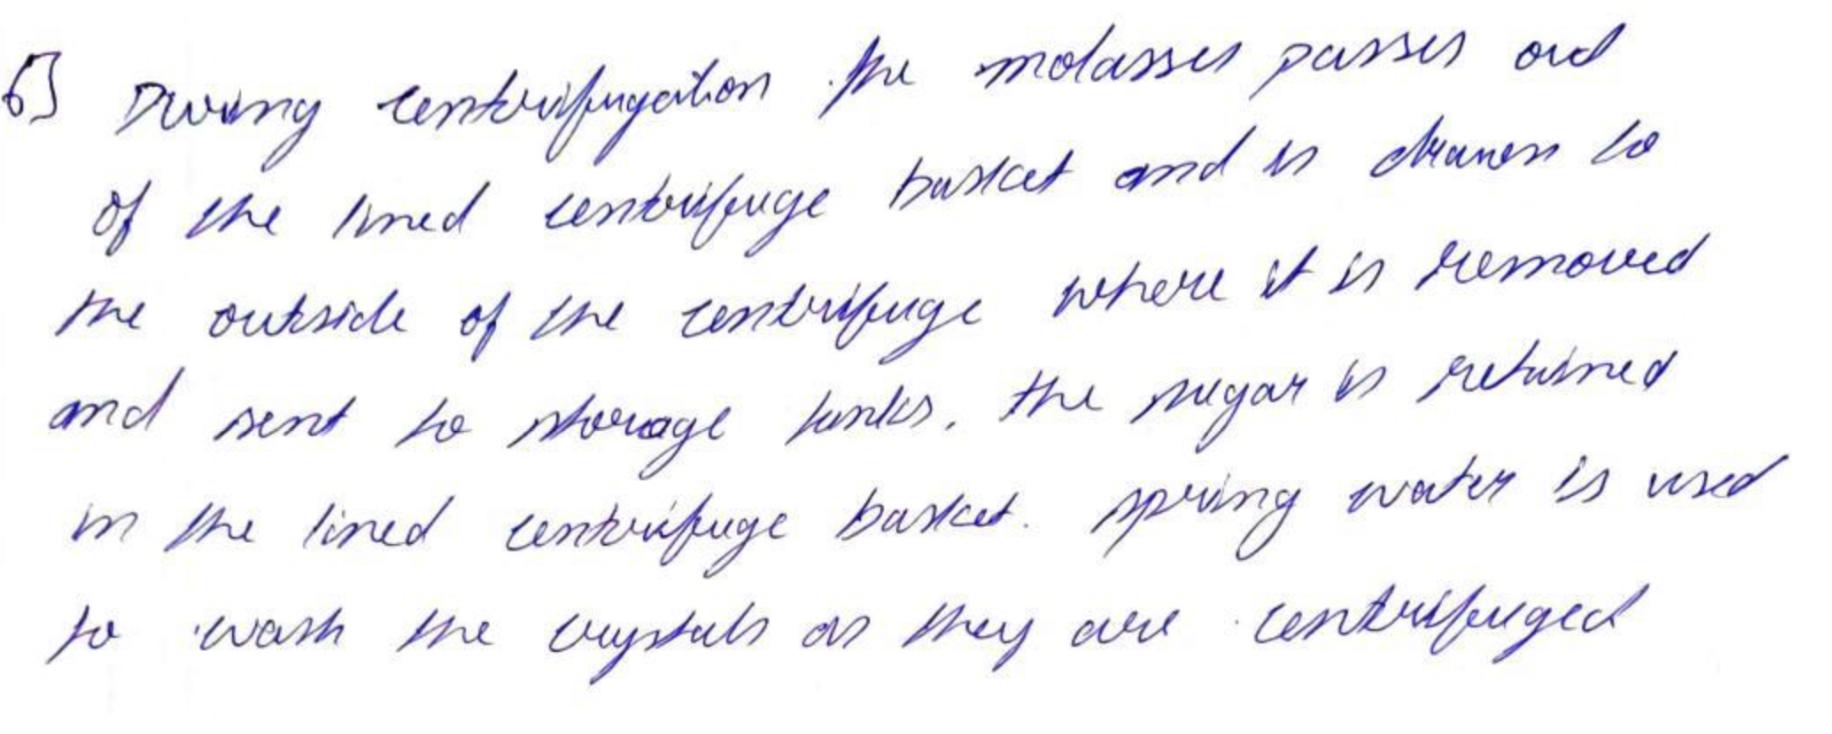 6] During centrifugation the molasses passes out
of the lined centrifuge basket and is drawn to
the outside of the centrifuge where it is removed
and sent to storage tanks. The sugar is retained
in the lined centrifuge basket. spring water is used
to wash the crystals as they are centrifuged